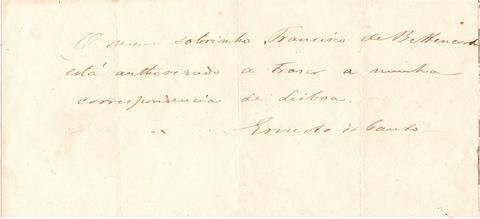 O meu sobrinho Francisco de Bettencourt
está authorizado a trazer a minha
correspondencia de Lisboa.
Ernesto do Canto